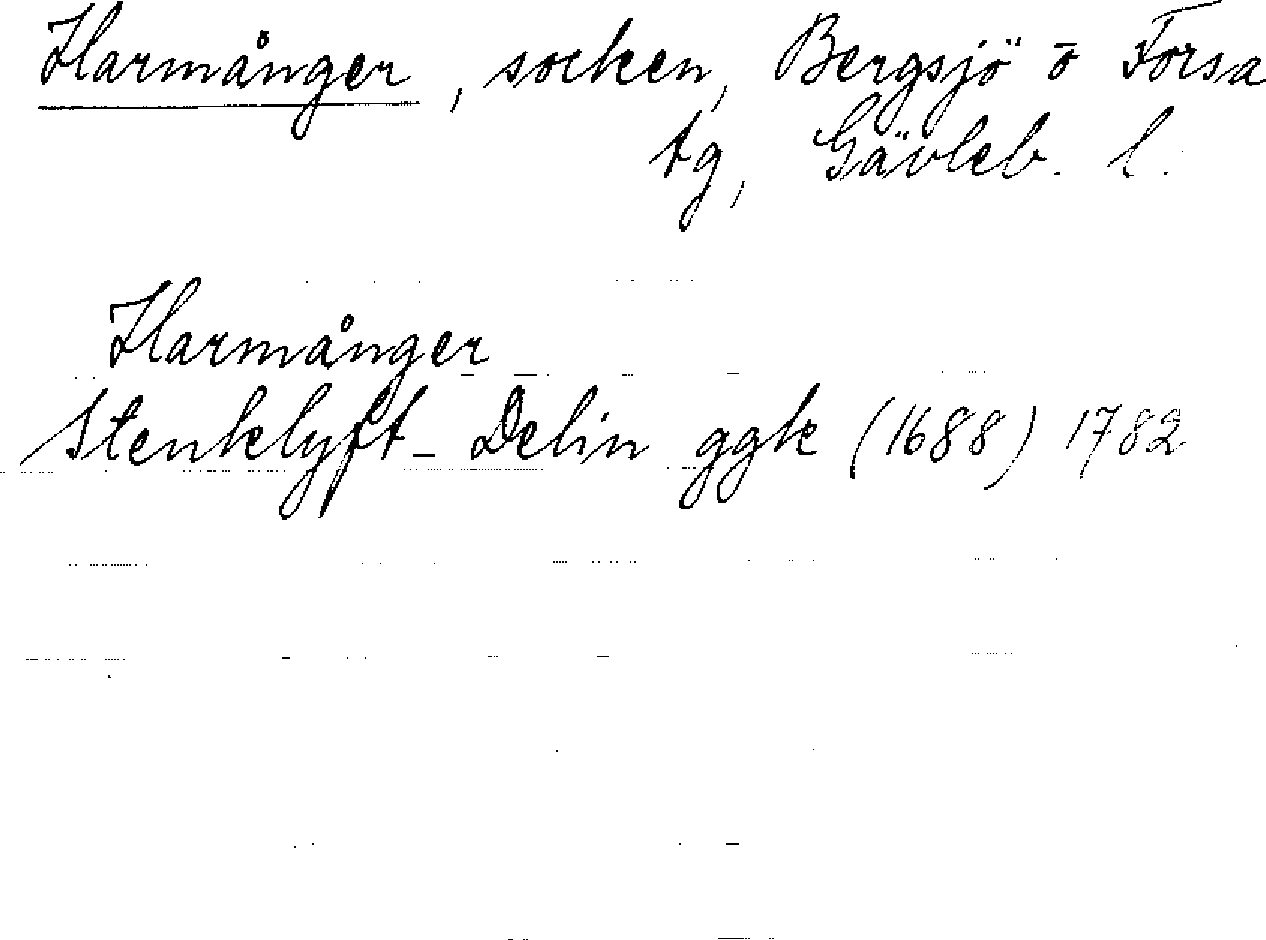 Harmånger, socken, Bergsjö o Forsa
tg, Gävleb. l.
Harmånger
Stenklyft - Delin ggk (1688) 1782